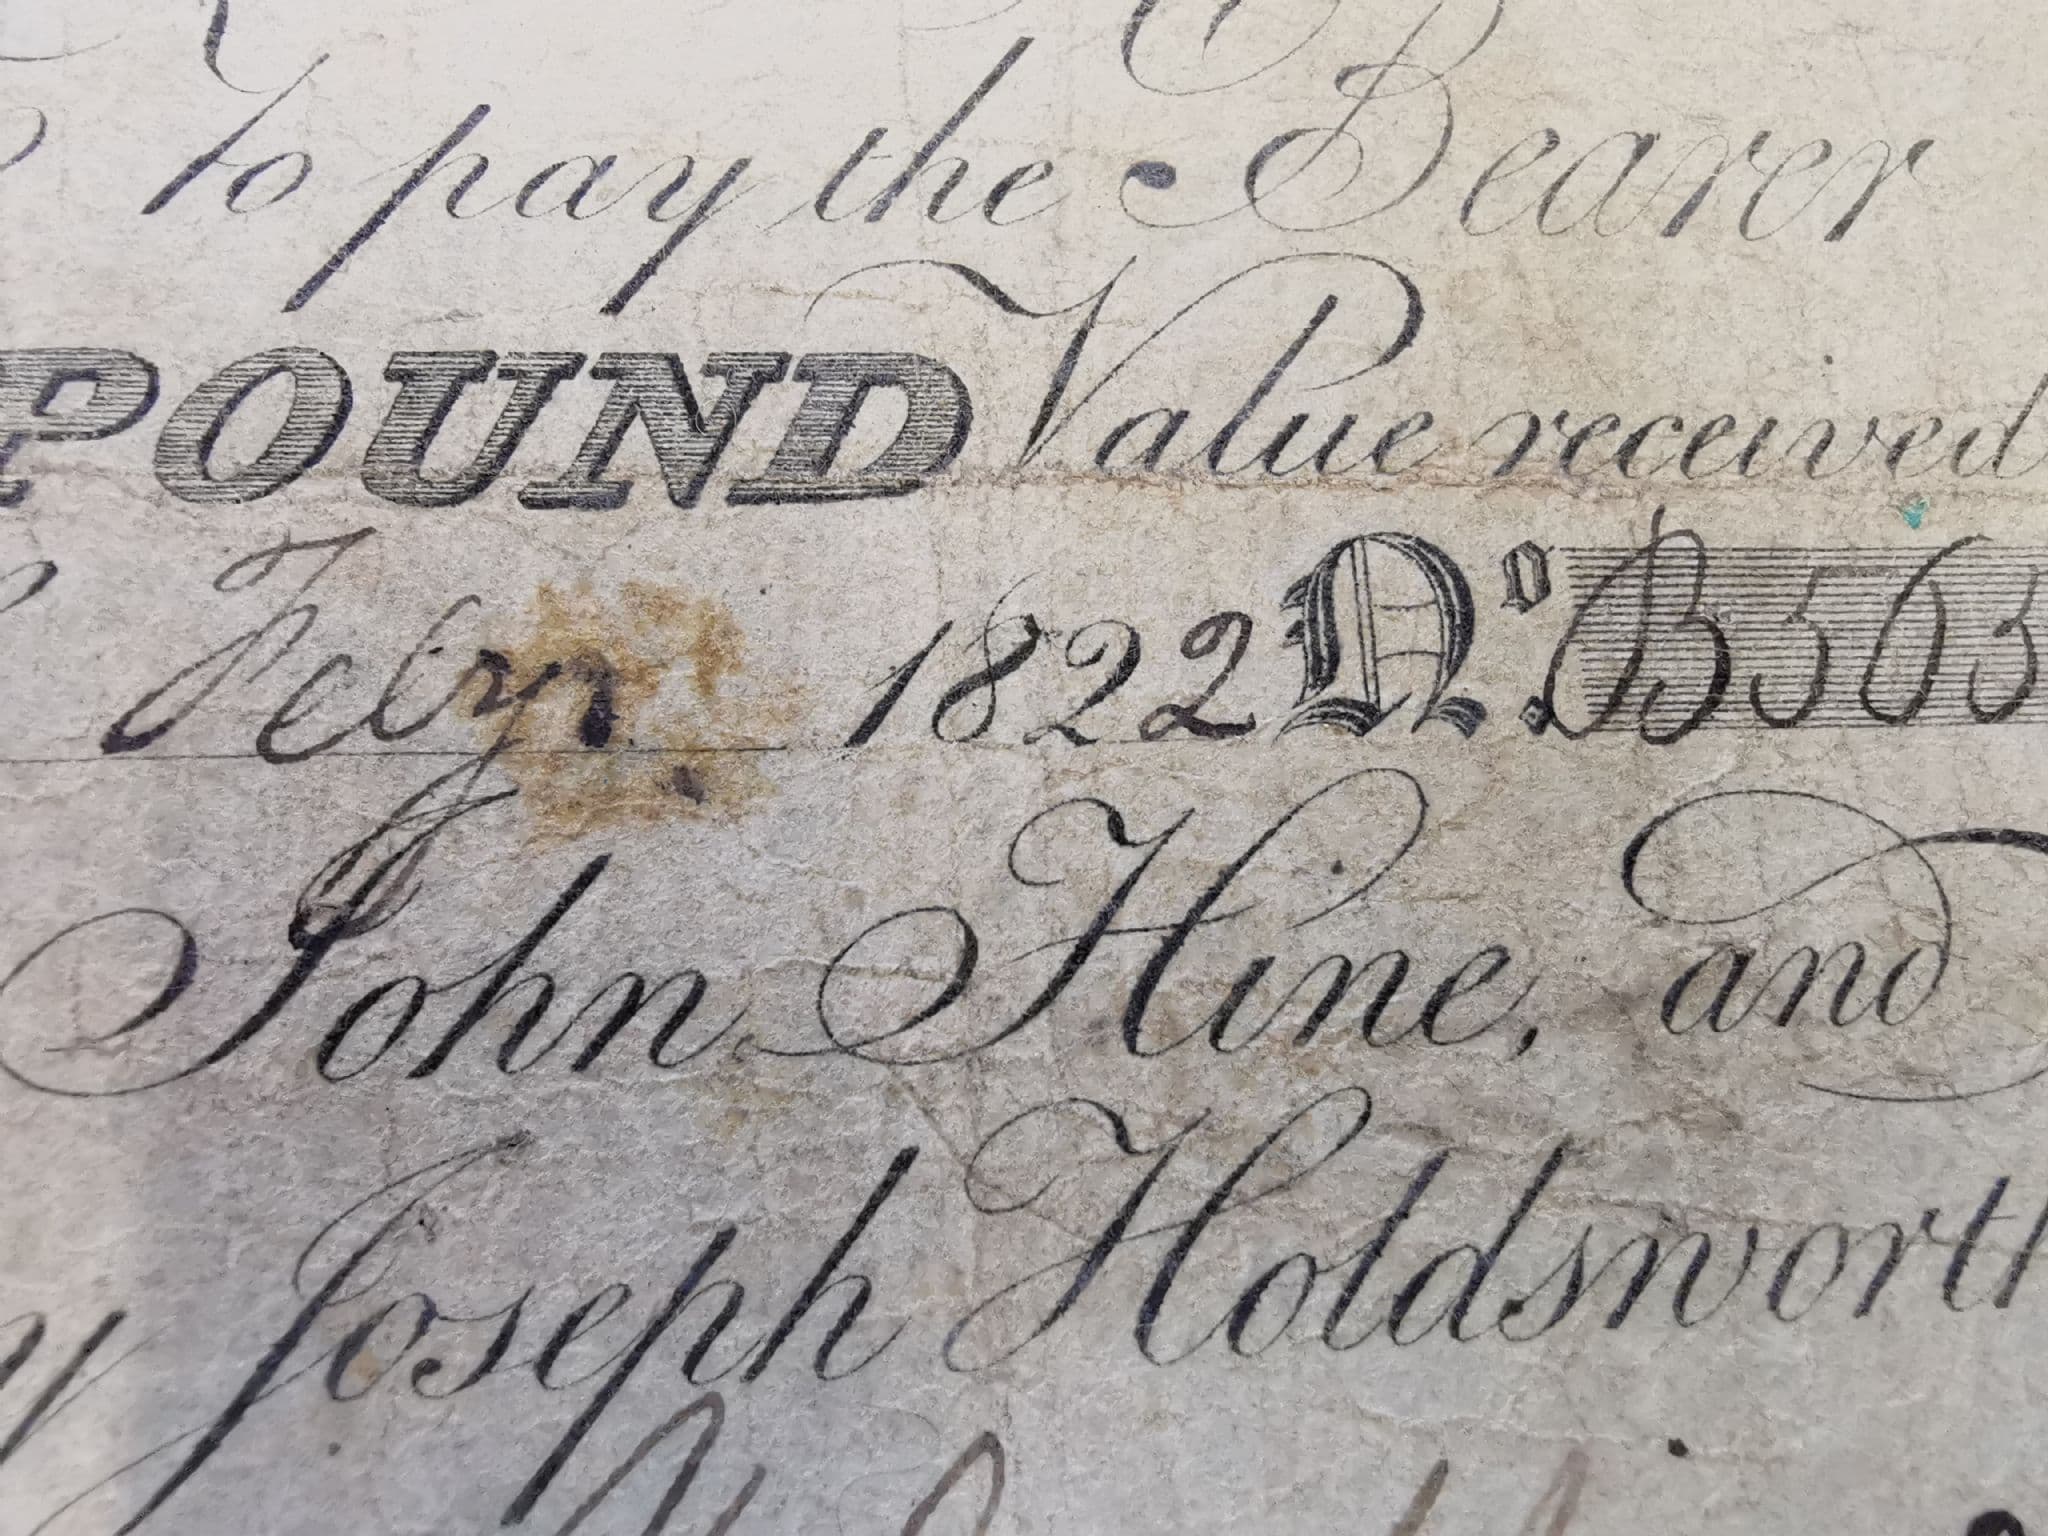 To pay the Bearer
POUND Value received
Feby 1822 No. B563
John Hine, and
Joseph Holdsworth